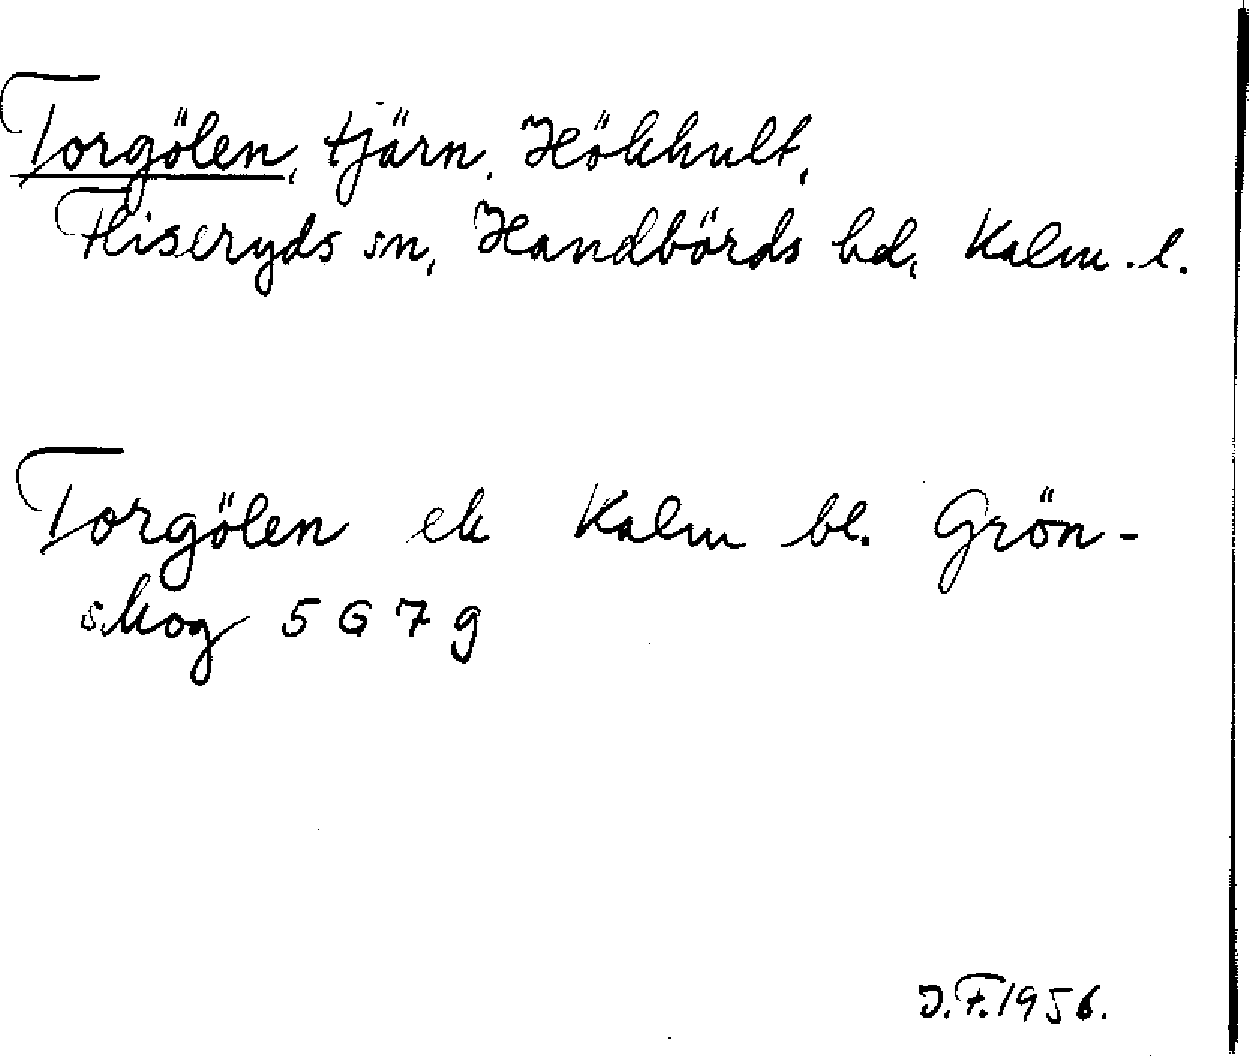 Torgölen, tjärn, Hökhult,
Fliseryds sn, Handbörds hd, Kalm. l.
Torgölen ek Kalm bl. Grön-
skog 5 G 7 g
J.F. 1956.